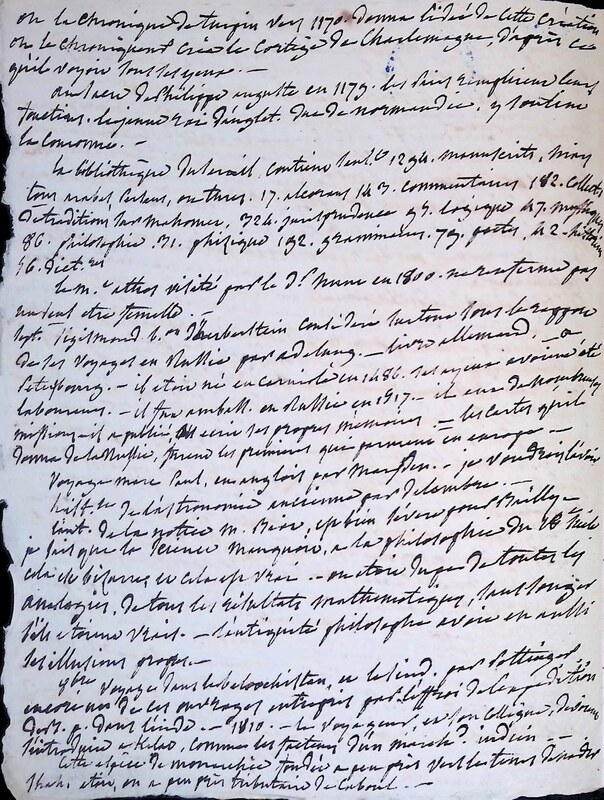 ou la chronique de turpin vers 1170. donna l'idée de cette création
ou le chroniqueur créa le cortège de Charlemagne, d'après ce
qu'il voyoit sous ses yeux. —
au sacre de Philippe auguste en 1179. les pairs remplirent leurs
fonctions. le jeune roi d'anglet. duc de normandie, y soutint
la couronne. —
la bibliothèque du serail, contient seul.t 1294. manuscrits,
tous arabes, persans, ou turcs. 17. alcorans 143. commentaires 182. collect.
de traditions sur mahomet, 324. jurisprudence 95. logique 47.
86. philosophie 31. phisique 192. grammaires. 79. poetes, 42. histoires
46. dict.res
le m.t athos visité par le d.r hunt en 1800. ne renferme pas
un seul etre femelle. —
sept. Sigismond b.on d'herberstein considéré surtout sous le rapport
de ses voyages en Russie par adelung. — livre allemand. — a
Petersbourg. — il etoit né en carniole en 1486. ses ayeux avoient été
laboureurs. — il fut ambass. en Russie en 1517. — il eut de nombreuses
missions — il a publié, ecrit ses propres mémoires — les cartes qu'il
donna de la Russie, furent les premieres qui parurent en europe —
Voyage marc Paul, en anglois par Marsden. — je voudrois l'avoir
hist.re de l'astronomie ancienne par delambre. —
l'aut. de la notice m. Biot, est bien sévère pour Bailly —
je sais que la science manquoit, a la philosophie du 18e siècle
cela est bizarre et cela est vrai — on etoit dupe de toutes les
analogies, de tous les résultats mathematiques, sans songer
s'ils etoient vrais. — l'antiquité philosophe avoit eu aussi
ses illusions propres. —
8bre voyage dans le beloochistan, et le sind. par Pottinger
encore un de ces ouvrages entrepris par l'effroi de l'expédition
de B. p. dans l'inde. — 1810. — le voyageur, et son collègue,
s'introduire a Kelat, comme les facteurs d'un march.d indien —
Cette espece de monarchie fondée a peu près vers les tems de nadir
Shah, etoit, ou a peu près tributaire de Caboul. —